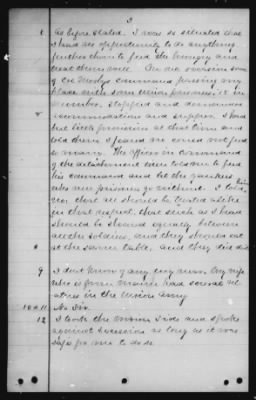 3
8 As before stated. I was so situated that
I had no opportunity to do anything
further than to feed the hungry and
treat them well. On one occasion some
of Col Mosby's command passing my
place with some union prisoners, in
number, stopped and demanded
accommodation and supper. I had
but little provision at that time and
told them I feared we could not feed
so many. The officer in command
of the detachment then told me to feed
his command and let the yankees
who were prisoners go without. I told him
no, that all should be treated alike
in that respect, that such as I had
should be shared equally between
all the soldiers, and they should eat
at the same table, and they did so.
9 I dont know of any only my wife
who is from Maine had several rel-
atives in the Union Army
10 & 11 No Sir.
12 I took the Union side and spoke
against secession as long as it was
safe for me to do so.